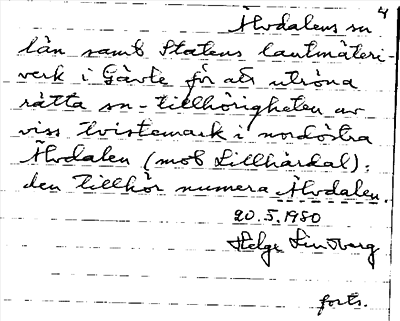 4
Älvdalens sn
län samt Statens lantmäteri-
verk i Gävle för att utröna
rätta sn-tillhörigheten av
viss tvistemark i nordöstra
Älvdalen (mot Lillhärdal);
den tillhör numera Älvdalen.
20.5.1980
Helge Lindberg
forts.